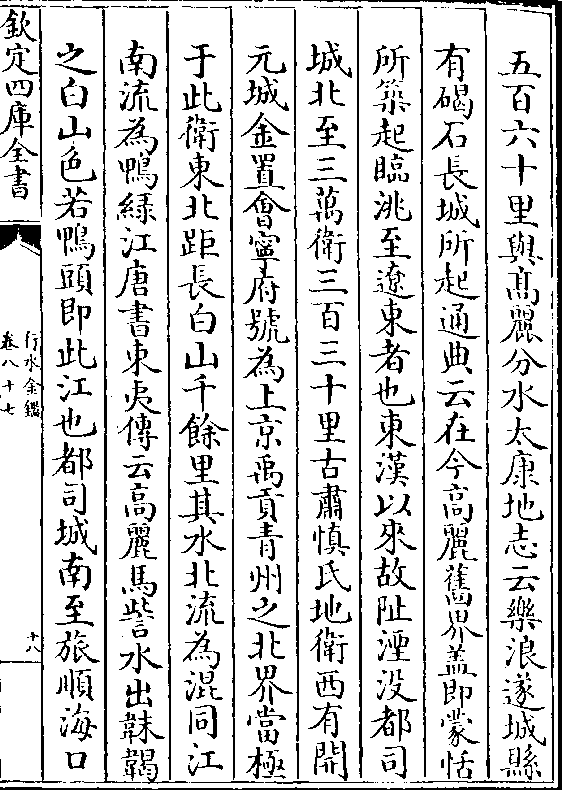 五百六十里與髙麗分水太康地志云樂浪遂城縣
有碣石長城所起通典云在今高麗舊界盖即蒙恬
所築起臨洮至遼東者也東漢以來故阯湮没都司
城北至三萬衛三百三十里古肅慎氏地衛西有開
元城金置會寧府號為上京禹貢青州之北界當極
于此衛東北距長白山千餘里其水北流為混同江
南流為鴨緑江唐書東夷傳云高麗馬訾水出靺鞨
之白山色若鴨頭即此江也都司城南至旅順海口
欽定四庫全書
行水金鑑
卷八十七
十八